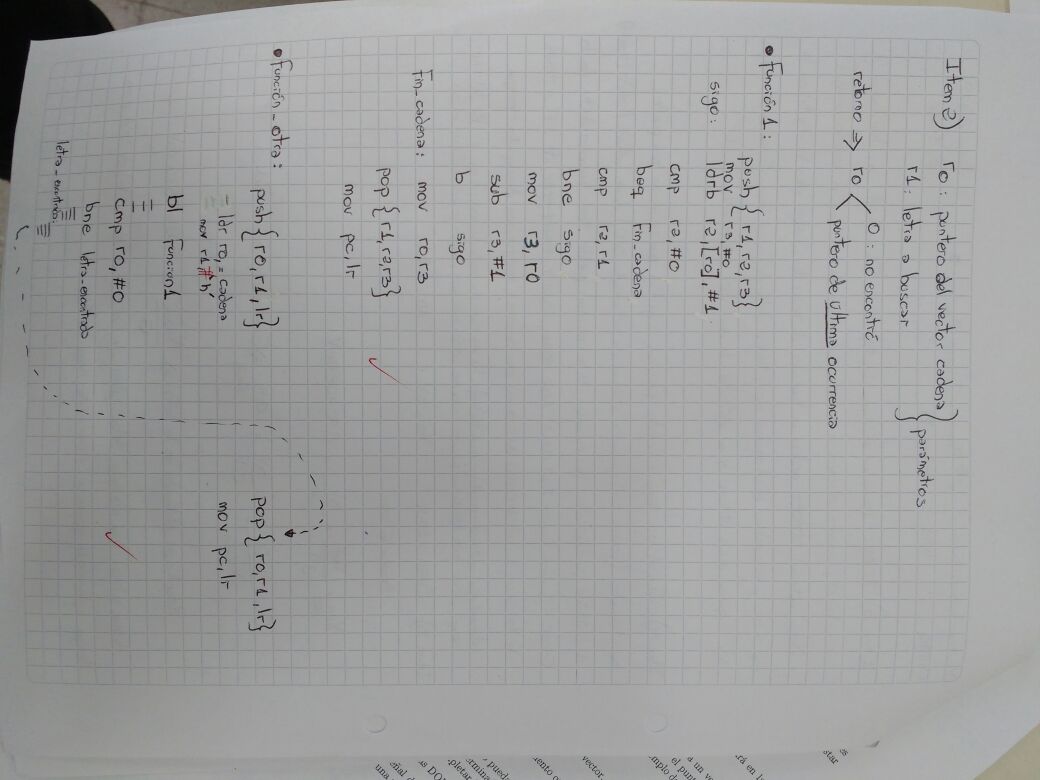 Item 2) r0: puntero del vector cadena } parámetros
r1: letra a buscar
retorno ⇒ r0 < 0: no encontré
puntero de última ocurrencia
• Función1:
push {r1,r2,r3}
mov r3,#0
sigo: ldrb r2,[r0],#1
cmp r2,#0
beq Fin_cadena
cmp r2,r1
bne sigo
mov r3,r0
sub r3,#1
b sigo
Fin_cadena: mov r0,r3
pop {r1,r2,r3}
mov pc,lr
• Función-otra:
push {r0,r1,lr}
= ldr r0,=cadena
= mov r1 #'h'
bl Funcion1
cmp r0,#0
bne letra-encontrado
letra-encontrado:
pop {r0,r1,lr}
mov pc,lr